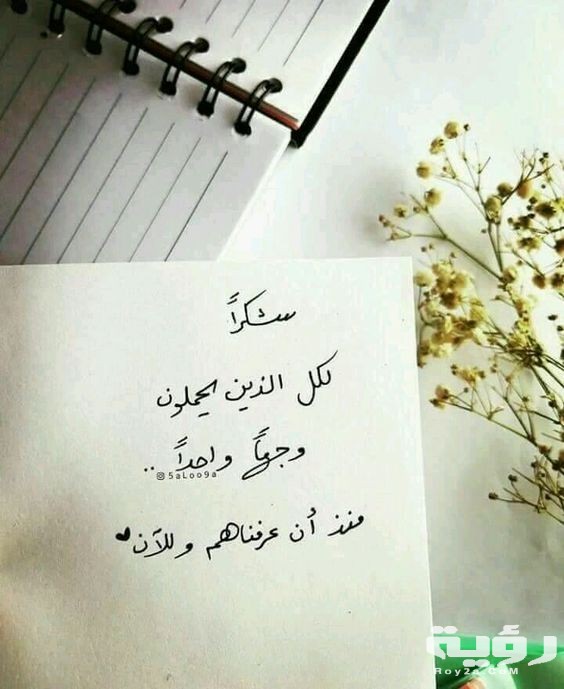 شكراً
لكل الذين يحملون
وجهاً واحداً ..
5aLoo9a
منذ أن عرفناهم وللآن♥
رؤية
Roy2a.CoM